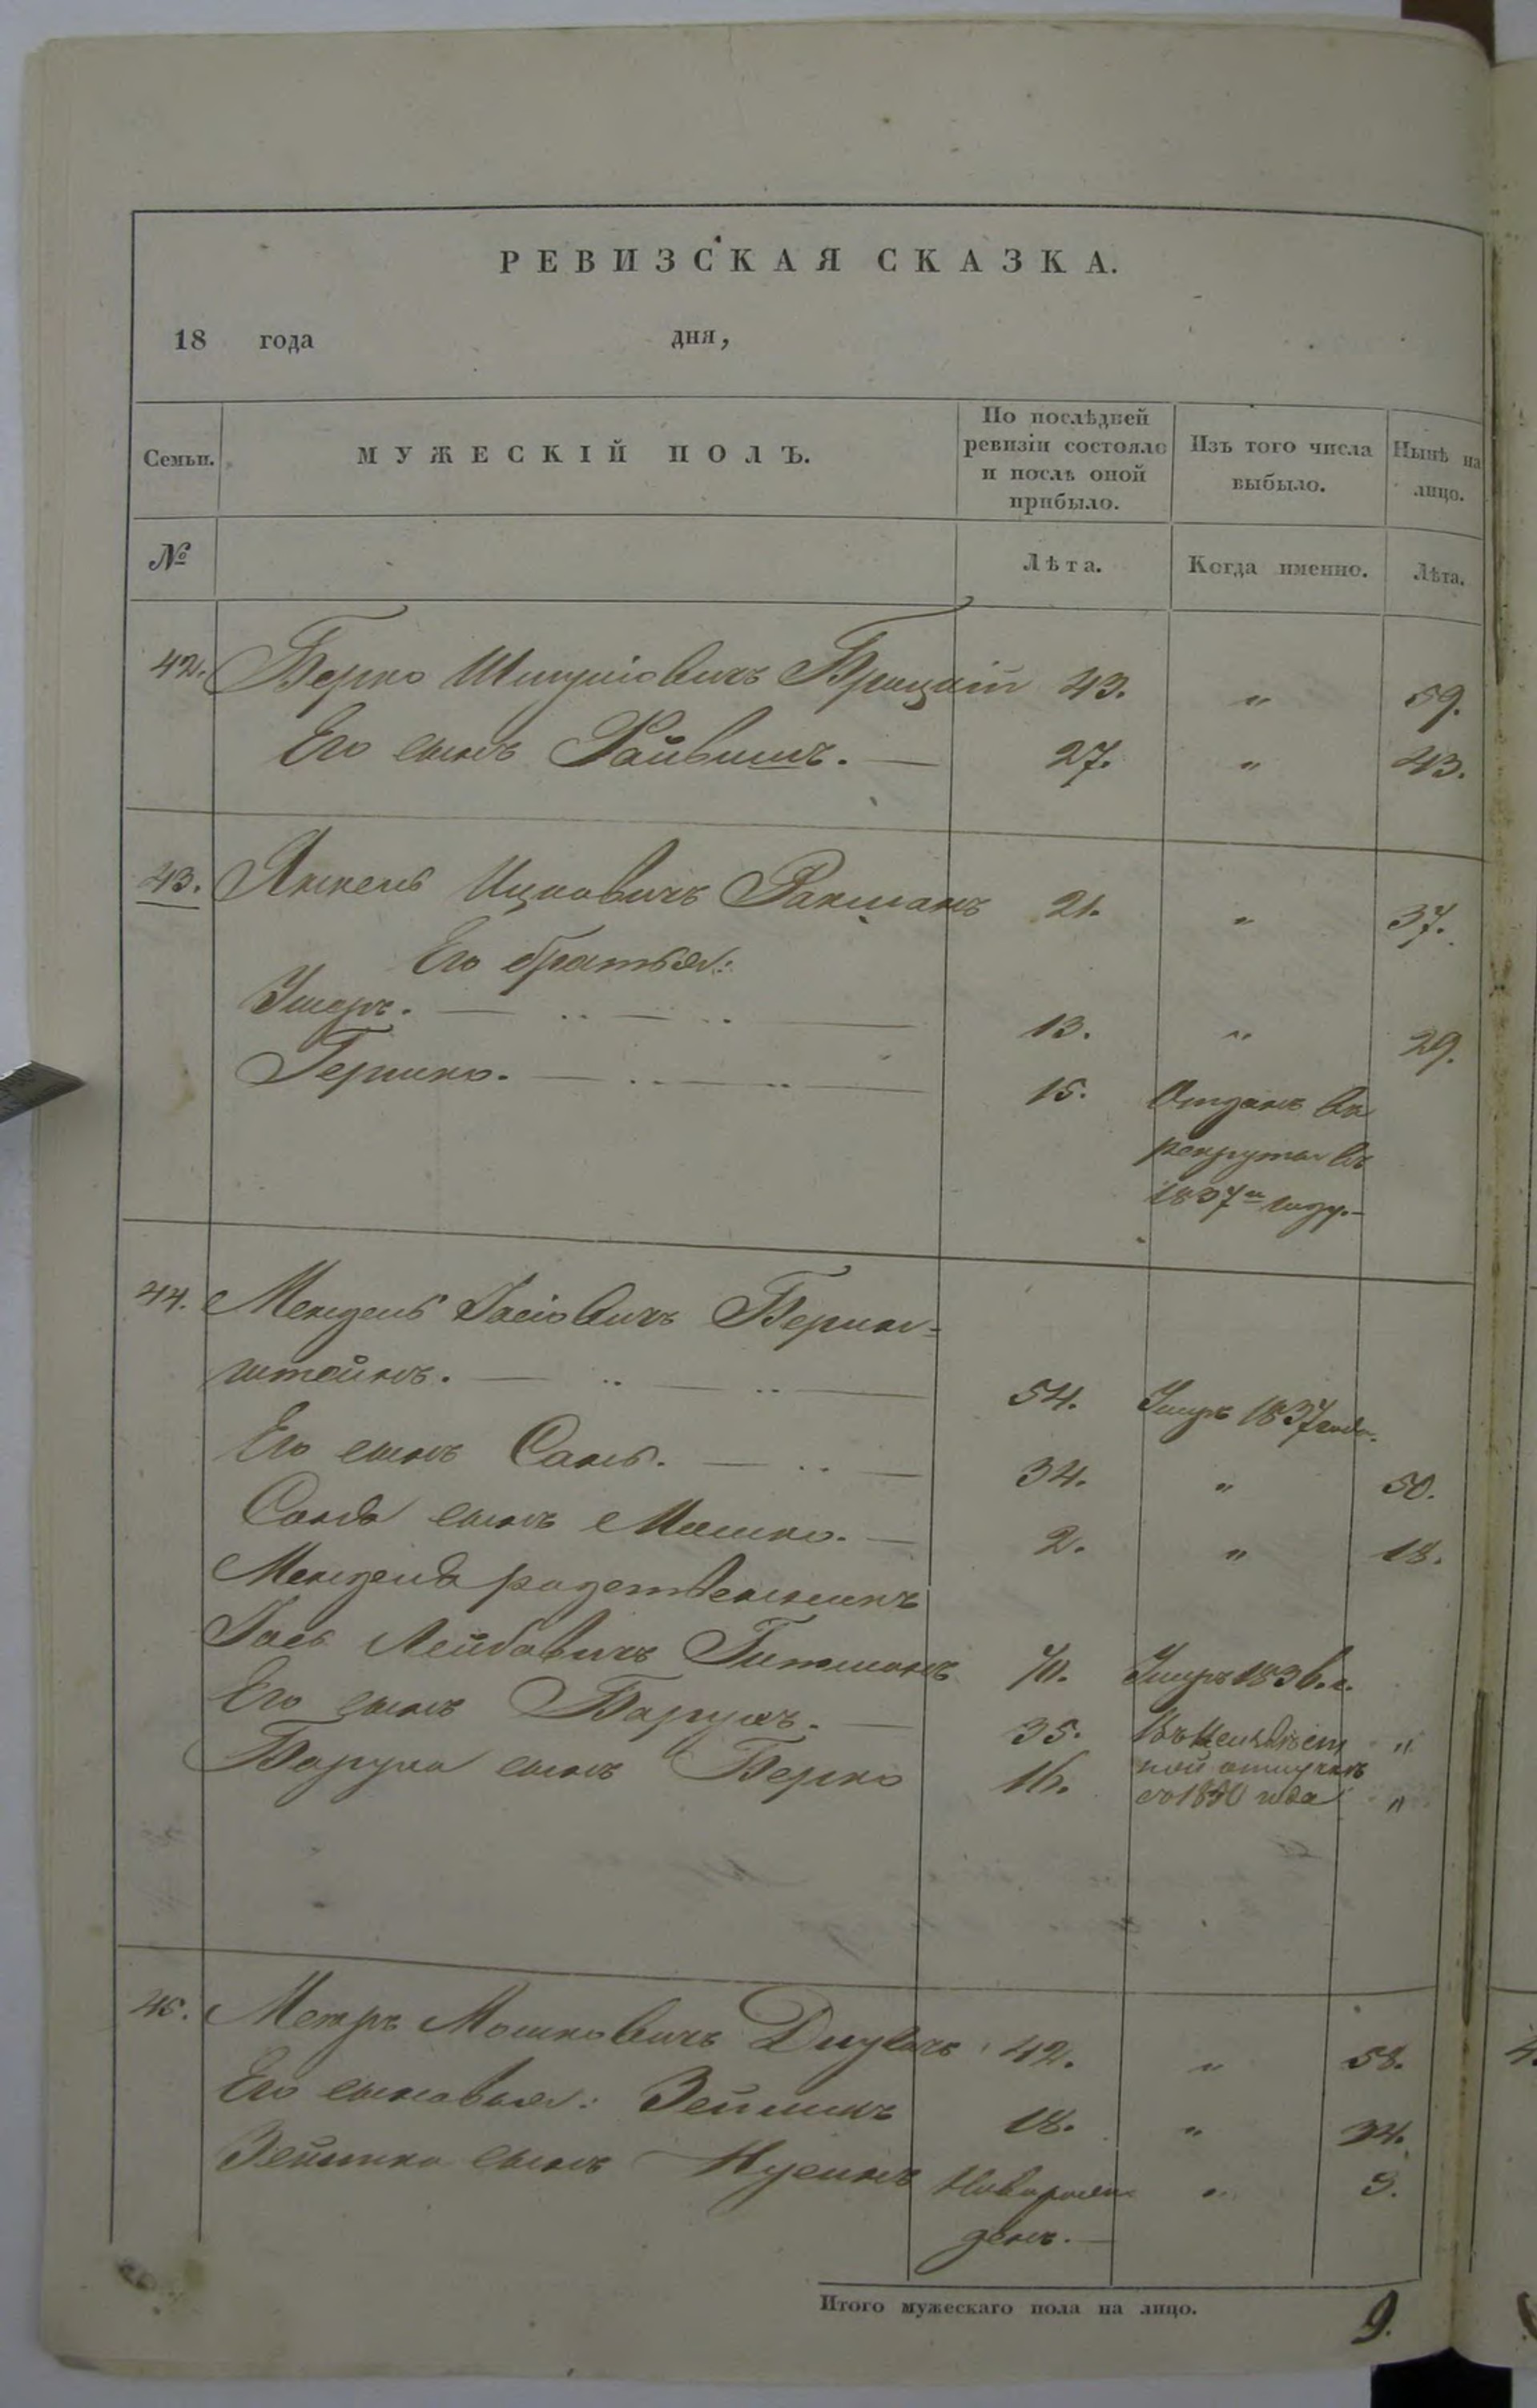 РЕВИЗСКАЯ СКАЗКА.
18 года дня,
Семьи. МУЖЕСКІЙ ПОЛЪ. По послѣдней ревизіи состояло и послѣ оной прибыло. Изъ того числа выбыло. Нынѣ на лицо.
№ Лѣта. Когда именно. Лѣта.
42. Берко 43. „ 59.
Его сынъ Файвишъ. — 27. „ 43.
43. Янкель Ицковичъ Ракманъ 21. „ 37.
Его братья:
Ушеръ. — 13. „ 29.
Гершко. — 15. Отданъ въ
рекруты въ
1837м году.—
44. Мендель Іосіовичъ Берин-
штейнъ. — 54. Умръ 1837 года.
Его сынъ — 34. „ 50.
сынъ Мошко. — 2. „ 18.
Менделя родственникъ
Іось Лейбовичъ Гитманъ Умръ 1836 г.
Его сынъ Барухъ. — 35. Въ неизвѣст „
Баруха сынъ Берко 16. ной отлучкѣ
съ 1850 года „
45. Мееръ Мошковичъ 42. „ 58.
Его сыновья: Зейликъ 18. „ 34.
Зейлика сынъ Нусинъ Новорож „ 9.
денъ. —
Итого мужескаго пола на лицо. 9.